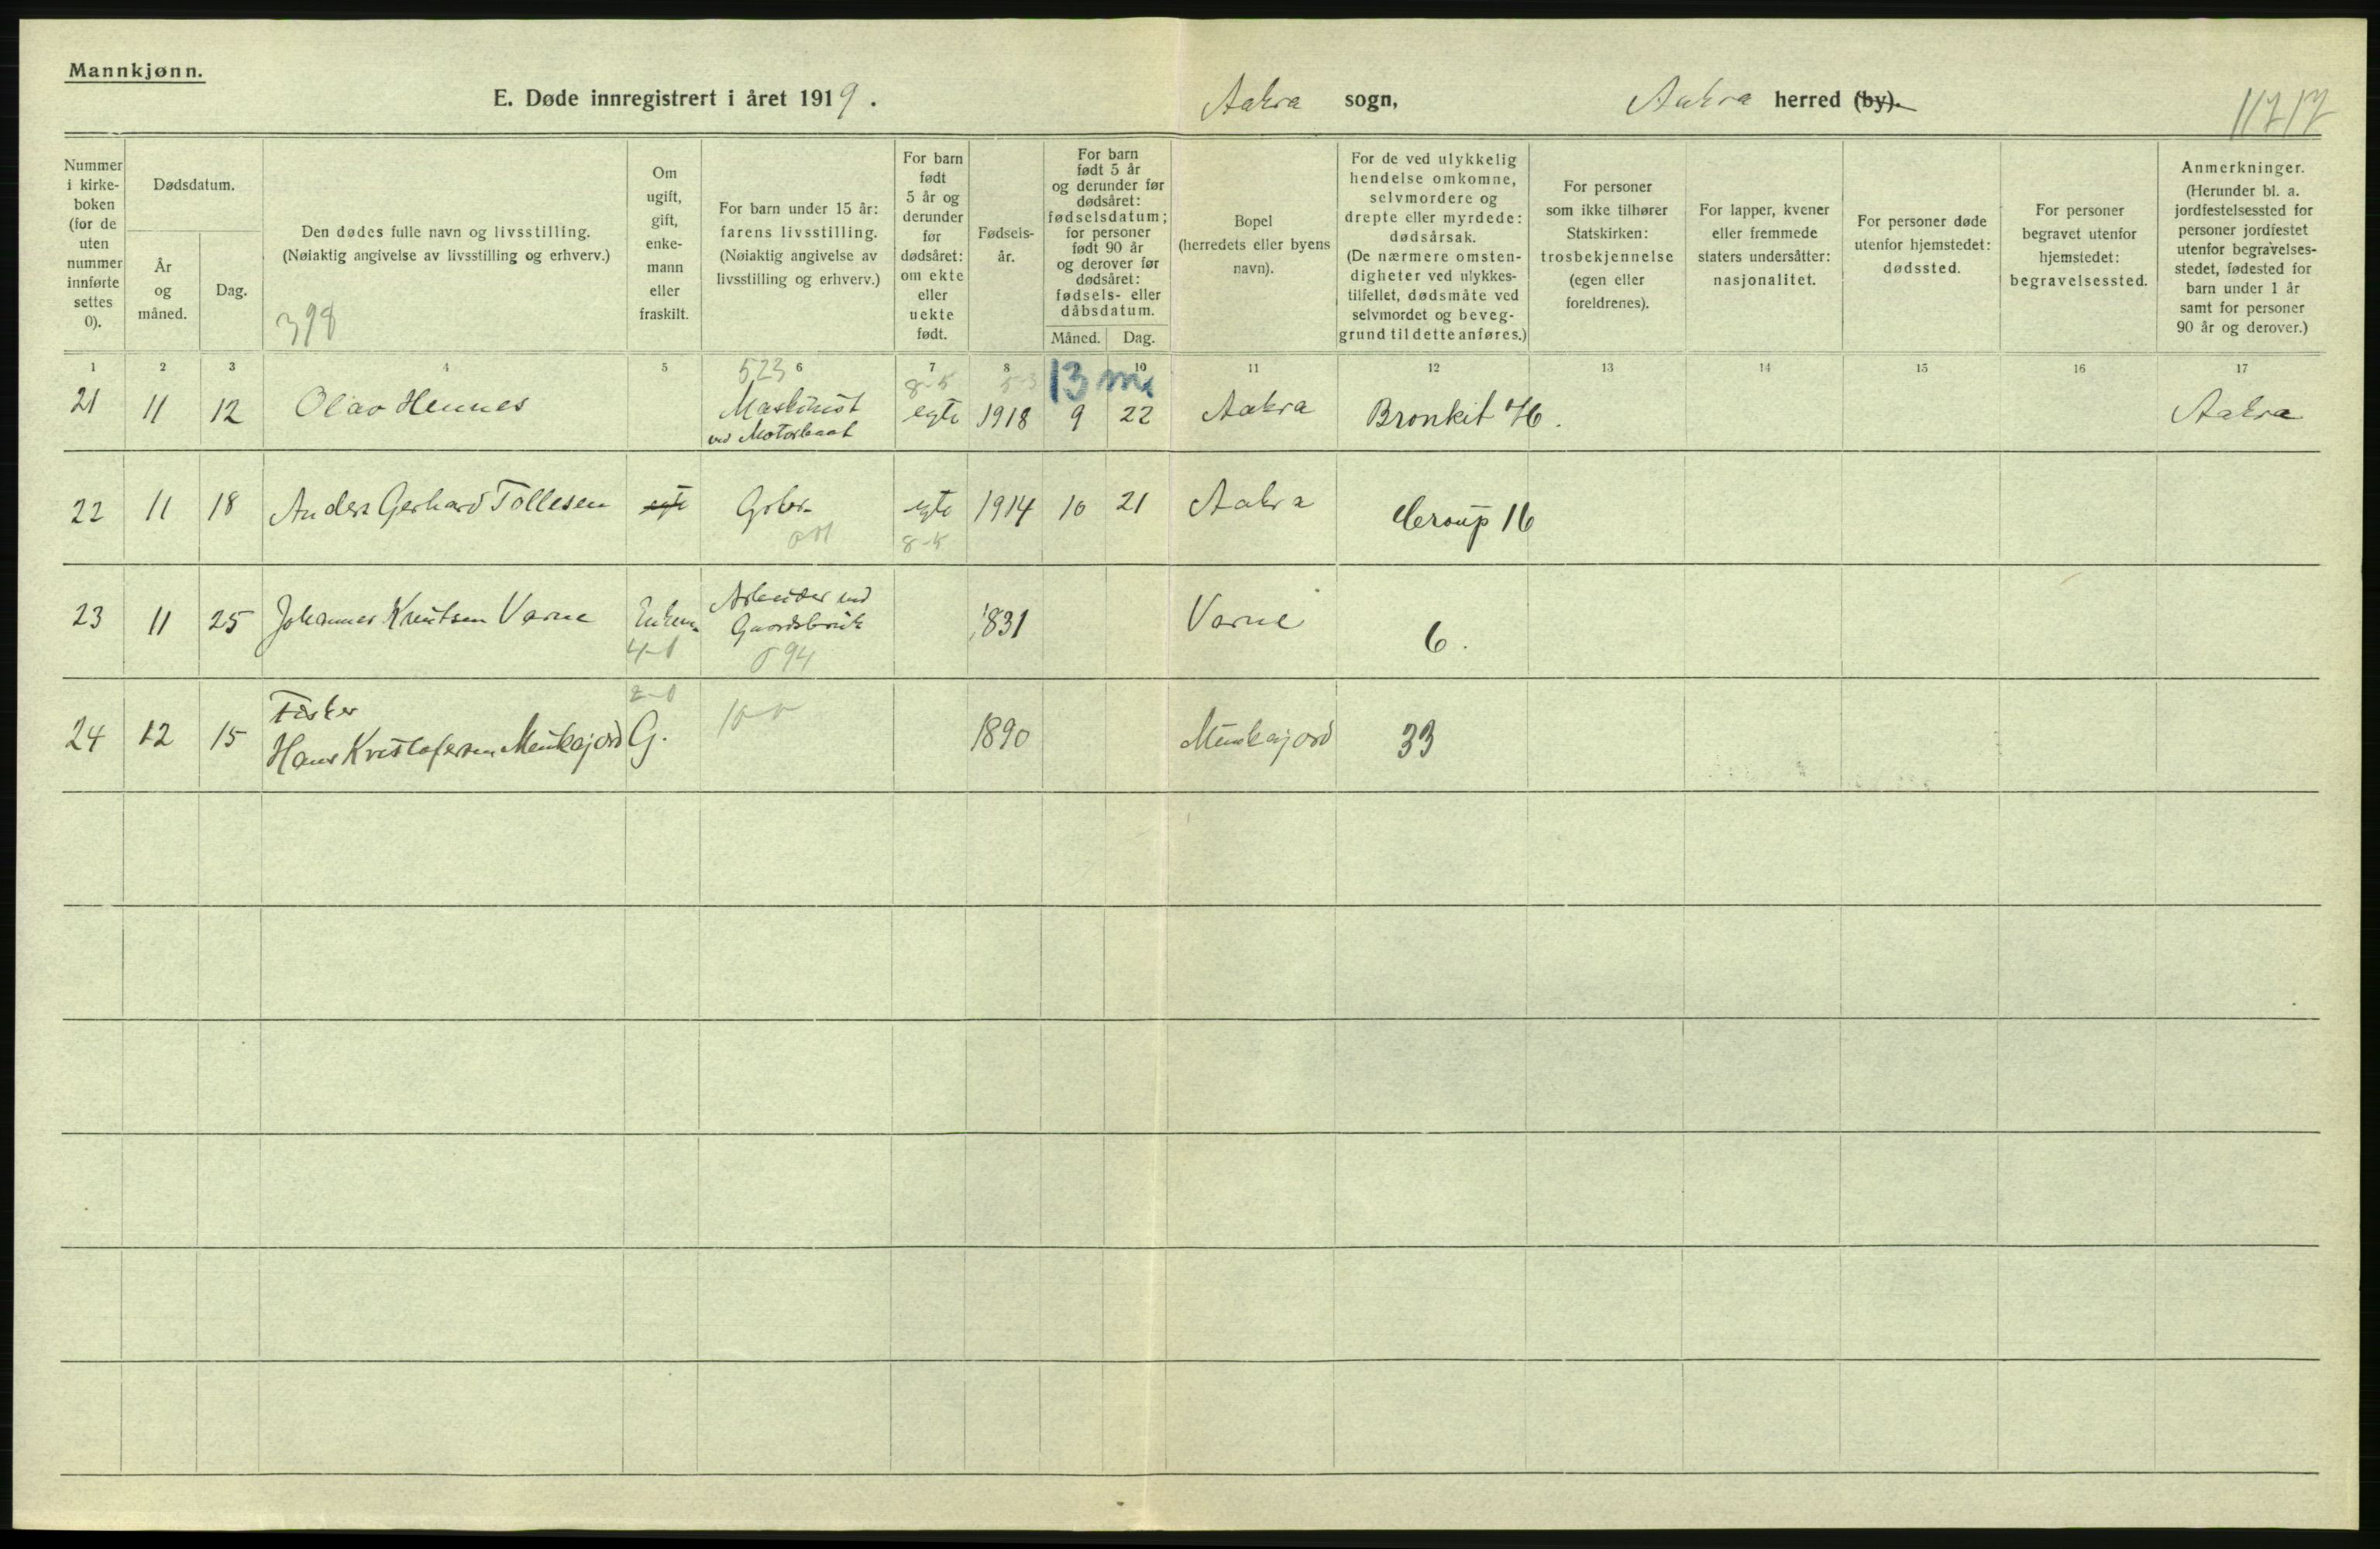 Mannkjønn.
E. Døde innregistrert i året 1919. Aakra sogn, Aakra herred (by).
Nummer i kirke-boken (for de uten nummer innførte settes 0).
Dødsdatum.
År og måned.
Dag.
Den dødes fulle navn og livsstilling.
(Nøiaktig angivelse av livsstilling og erhverv.)
398
Om ugift, gift, enke-mann eller fraskilt.
For barn under 15 år: farens livsstilling.
(Nøiaktig angivelse av livsstilling og erhverv.)
For barn født 5 år og derunder før dødsåret: om ekte eller uekte født.
Fødsels-år.
For barn født 5 år og derunder før dødsåret: fødselsdatum; for personer født 90 år og derover før dødsåret: fødsels- eller dåbsdatum.
Måned. Dag.
Bopel (herredets eller byens navn).
For de ved ulykkelig hendelse omkomne, selvmordere og drepte eller myrdede: dødsårsak.
(De nærmere omsten-digheter ved ulykkes-tilfellet, dødsmåte ved selvmordet og beveg-grund til dette anføres.)
For personer som ikke tilhører Statskirken: trosbekjennelse (egen eller foreldrenes).
For lapper, kvener eller fremmede staters undersåtter: nasjonalitet.
For personer døde utenfor hjemstedet: dødssted.
For personer begravet utenfor hjemstedet: begravelsessted.
Anmerkninger.
(Herunder bl. a. jordfestelsessted for personer jordfestet utenfor begravelses-stedet, fødested for barn under 1 år samt for personer 90 år og derover.)
1 2 3 4 5 6 7 8 10 11 12 13 14 15 16 17
523 8-5 5-3 13 m
21 11 12 Olav Hennes Maskinist egte 1918 9 22 Aakra Bronkit 46. Aakra
ved Motorbaat
22 11 18 Anders Gerhard Tollesen egte Grbr. egte 1914 10 21 Aakra Croup 16
8-5
23 11 25 Johannes Knutsen Varne Enkem. Arbeider ved Gaardsbruk 1831 Varne 6.
4-1 094
2-0
Fisker 100
24 12 15 Hans Kristofersen Munkajord G. 1890 Munkajord 33